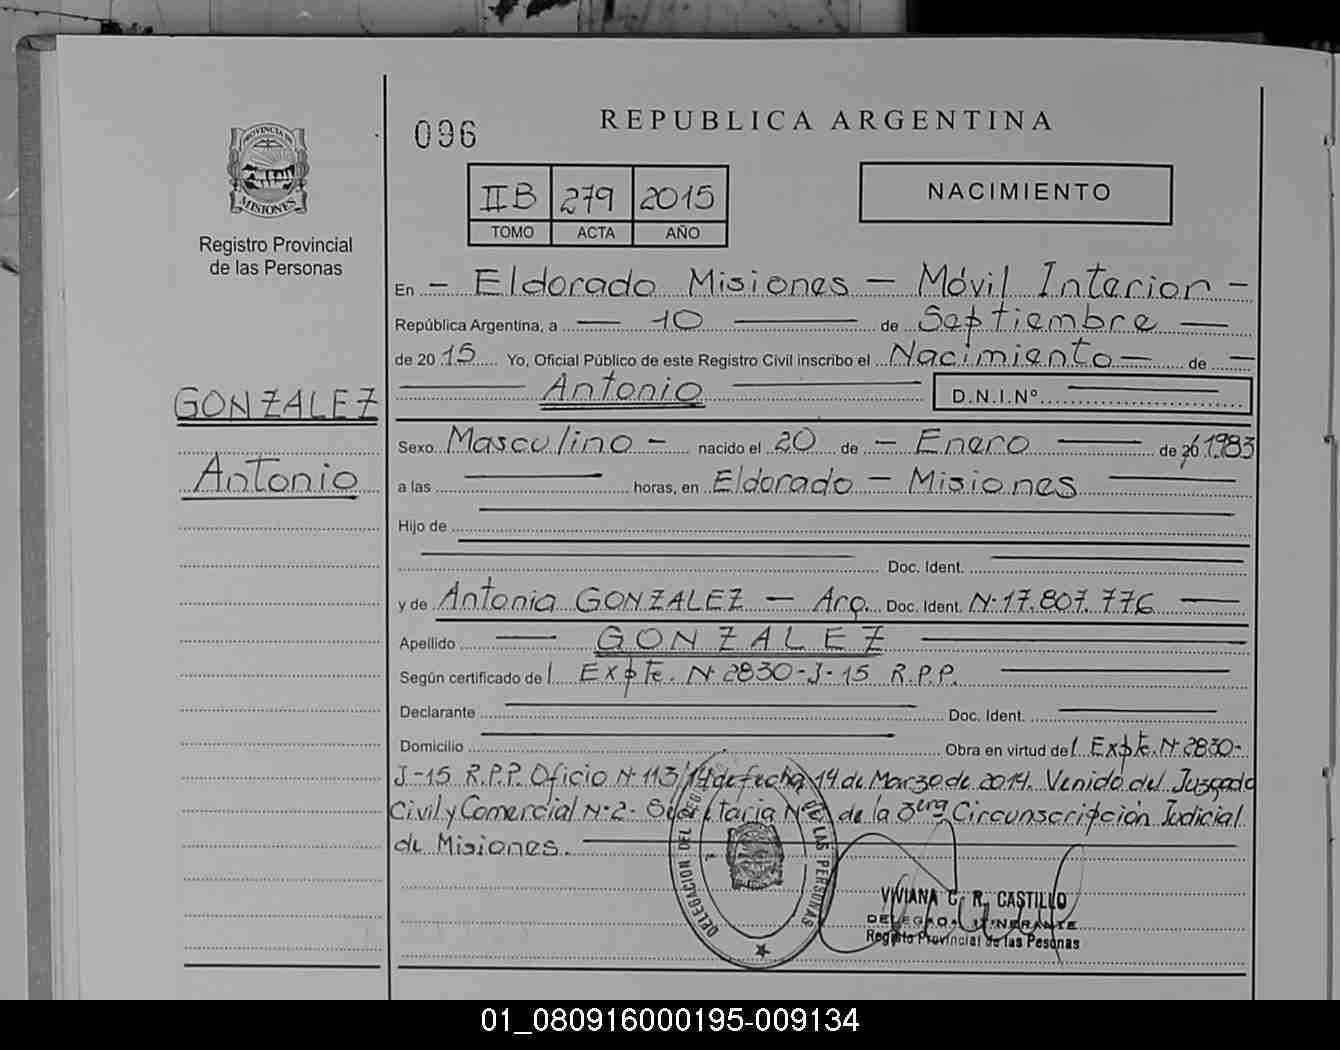 096
REPUBLICA ARGENTINA
PROVINCIA DE
MISIONES
Registro Provincial
de las Personas
IIB 279 2015
TOMO ACTA AÑO
NACIMIENTO
En - Eldorado Misiones - Móvil Interior -
República Argentina, a 10 de Septiembre
de 2015 Yo, Oficial Público de este Registro Civil inscribo el Nacimiento de
Antonio D.N.I.Nº
GONZALEZ
Antonio
Sexo Masculino - nacido el 20 de - Enero de 1983
a las horas, en Eldorado - Misiones
Hijo de
Doc. Ident.
y de Antonia GONZALEZ - Arg. Doc. Ident. Nº 17.807.776
Apellido GONZALEZ
Según certificado de l Expte. Nº 2830-J-15 R.P.P.
Declarante Doc. Ident.
Domicilio Obra en virtud de l Expte. Nº 2830-
J-15 R.P.P. Oficio Nº 113/14 de fecha 14 de Marzo de 2014. Venido del Juzgado
Civil y Comercial Nº 2- Secretaria Nº de la 3era Circunscripción Judicial
de Misiones.
DELEGACION DEL REGISTRO DE LAS PERSONAS
VIVIANA C. R. CASTILLO
DELEGADA ITINERANTE
Registro Provincial de las Pesonas
01_080916000195-009134